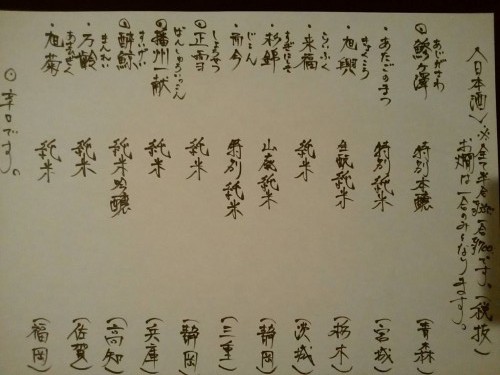 〈日本酒〉※全て半合 一合 です。(税抜)
お燗は一合のみとなります。
あじがさわ
◎鰺ヶ澤 特別本醸 (青森)
・あたごのまつ 特別純米 (宮城)
きょくこう
・旭興 生酛純米 (栃木)
らいふく
・来福 純米 (茨城)
すぎにしき
・杉錦 山廃純米 (静岡)
じこん
・而今 特別純米 (三重)
しょうせつ
◎正雪 純米 (静岡)
ばんしゅういっこん
◎播州一献 純米 (兵庫)
すいげい
◎酔鯨 純米吟醸 (高知)
まんれい
・万齢 純米 (佐賀)
あさひきく
・旭菊 純米 (福岡)
◎辛口です。